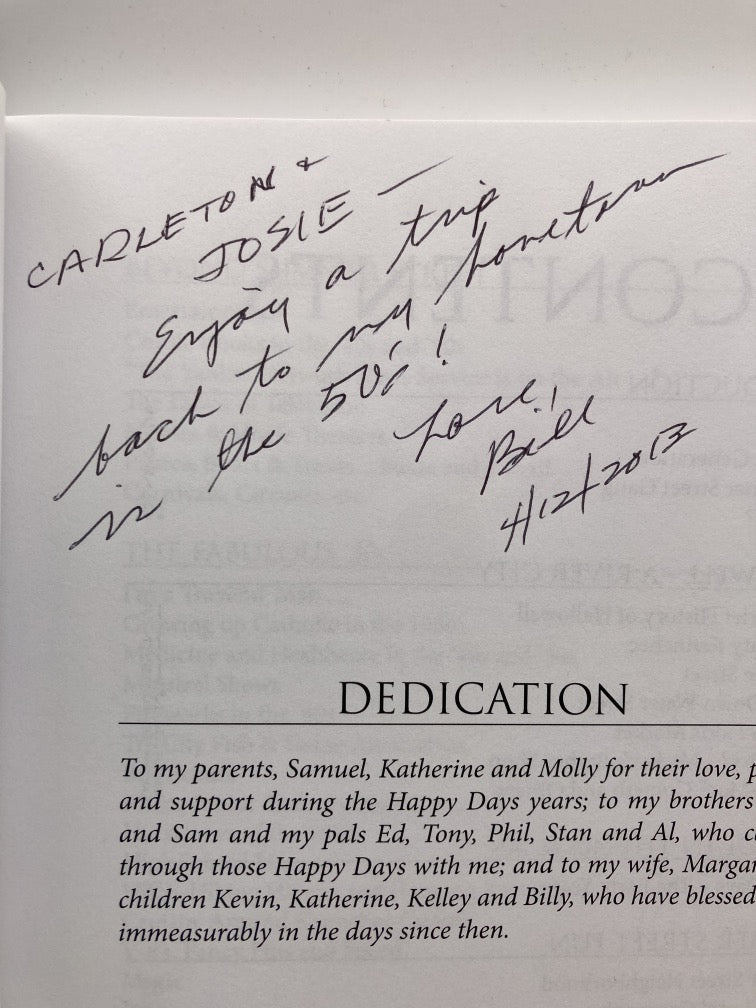 CARLETON +
JOSIE —
Enjoy a trip
back to my hometown
in the 50's!
Love,
Bill
4/12/2013
DEDICATION
To my parents, Samuel, Katherine and Molly for their love, p
and support during the Happy Days years; to my brothers
and Sam and my pals Ed, Tony, Phil, Stan and Al, who c
through those Happy Days with me; and to my wife, Margar
children Kevin, Katherine, Kelley and Billy, who have blessed
immeasurably in the days since then.